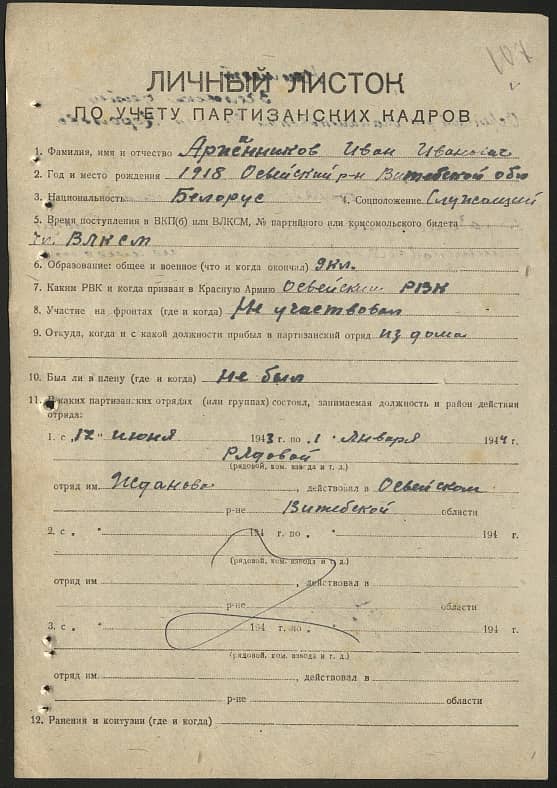 ЛИЧНЫЙ ЛИСТОК
ПО УЧЕТУ ПАРТИЗАНСКИХ КАДРОВ
1. Фамилия, имя и отчество Иван Иванович
2. Год и место рождения 1918 Освейский р-н Витебской обл
3. Национальность Белорус 4. Соцположение Служащий
5. Время поступления в ВКП(б) или ВЛКСМ, № партийного или комсомольского билета
ВЛКСМ
6. Образование: общее и военное (что и когда окончил) 9 кл.
7. Каким РВК и когда призван в Красную Армию Освейским РВК
8. Участие на фронтах (где и когда) Не участвовал
9. Откуда, когда и с какой должности прибыл в партизанский отряд из дома
10. Был ли в плену (где и когда) не был
11. В каких партизанских отрядах (или группах) состоял, занимаемая должность и район действия
отряда:
1. с „17" июня 1943 г. по „1" января 1944 г.
Рядовой
(рядовой, ком. взвода и т. д.)
отряд им. Жданова, действовал в Освейском
р-не Витебской области
2. с „ " 194 г. по „ 194 г.
(рядовой, ком. взвода и т. д.)
отряд им , действовал в
р-не области
3. с „ " 194 г. по „ 194 г.
(рядовой, ком. взвода и т. д.)
отряд им. , действовал в
р-не области
12. Ранения и контузии (где и когда)